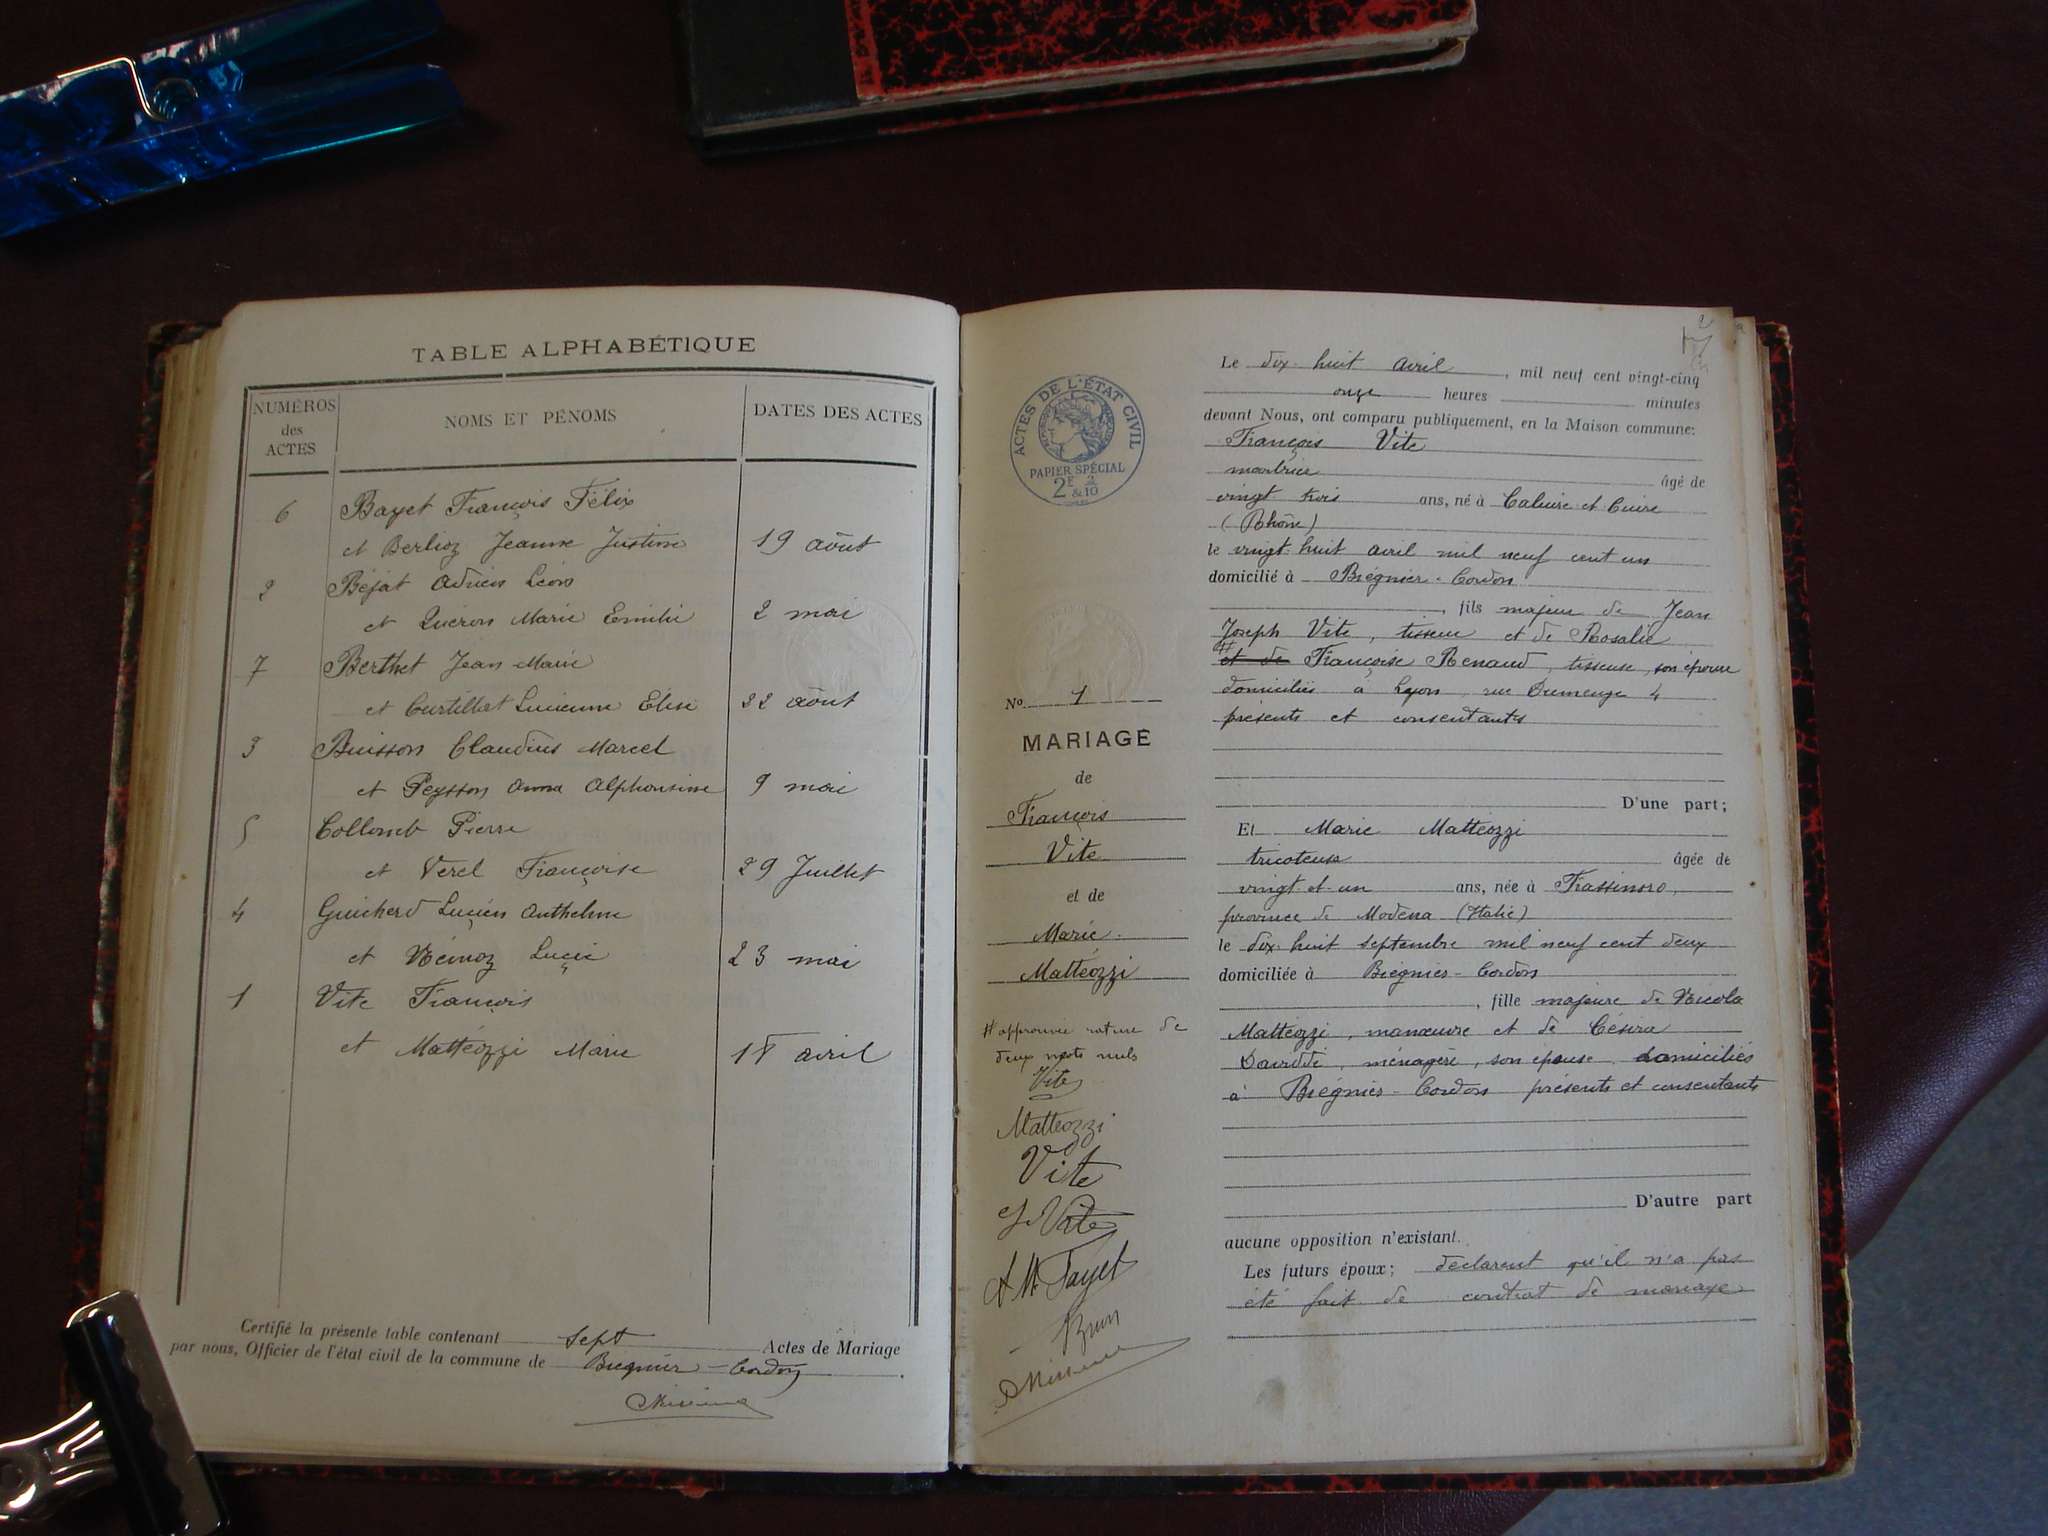 TABLE ALPHABÉTIQUE
NUMÉROS des ACTES
NOMS ET PÉNOMS
DATES DES ACTES
6 Bayet François Félix
et Berlioz Jeanne Justine 19 août
2 Béjat Adrien Léon
et Quéron Marie Emilie 2 mai
7 Berthet Jean Marie
et Curtillet Lucienne Elise 22 août
3 Buisson Claudius Marcel
et Peysson Anna Alphonsine 9 mai
5 Collomb Pierre
et Verel Françoise 29 Juillet
4 Guicherd Lucien Anthelme
et Neinoz Lucie 23 mai
1 Vite François
et Mattéozzi Marie 18 avril
Certifié la présente table contenant sept Actes de Mariage
par nous, Officier de l'état civil de la commune de Bregnier-Cordon.
ACTES DE L'ÉTAT CIVIL
PAPIER SPÉCIAL
2F 2/10
No 1
MARIAGE
de
François
Vite
et de
Marie
Mattéozzi
# approuvée rature de
deux mots nuls
Vite
Matteozzi
Vite
J. Vite
Brun
Le dix-huit avril, mil neuf cent vingt-cinq
onze heures minutes
devant Nous, ont comparu publiquement, en la Maison commune:
François Vite
âgé de
vingt trois ans, né à Caluire et Cuire
(Rhône)
le vingt-huit avril mil neuf cent un
domicilié à Brégnier-Cordon
, fils majeur de Jean
Joseph Vite, tisseur et de Rosalie
# et de Françoise Renaud, tisseuse, son épouse
domiciliés à Lyon, rue Dumenge 4
présents et consentants
D'une part;
Et Marie Mattéozzi
tricoteuse âgée de
vingt-et-un ans, née à Frassinoro,
province de Modena (Italie)
le dix-huit septembre mil neuf cent deux
domiciliée à Brégnier-Cordon
, fille majeure de Nicola
Mattéozzi, manœuvre et de Césira
Daviddi, ménagère, son épouse, domiciliés
à Brégnier-Cordon présents et consentants
D'autre part
aucune opposition n'existant.
Les futurs époux; déclarent qu'il n'a pas
été fait de contrat de mariage